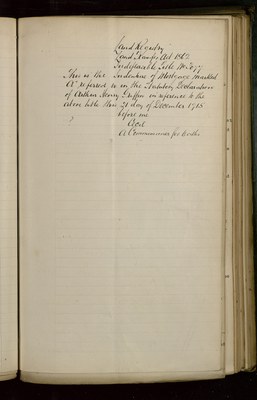 Land Registry
Land Transfer Act 1862
Indefeasible Title No
This is the Indenture of Mortgage marked
"A" referred to in the Statutory Declaration
of Arthur Henry Guffin in reference to the
above title this 21 day of December 1915
before me
A Commissioner for Oaths